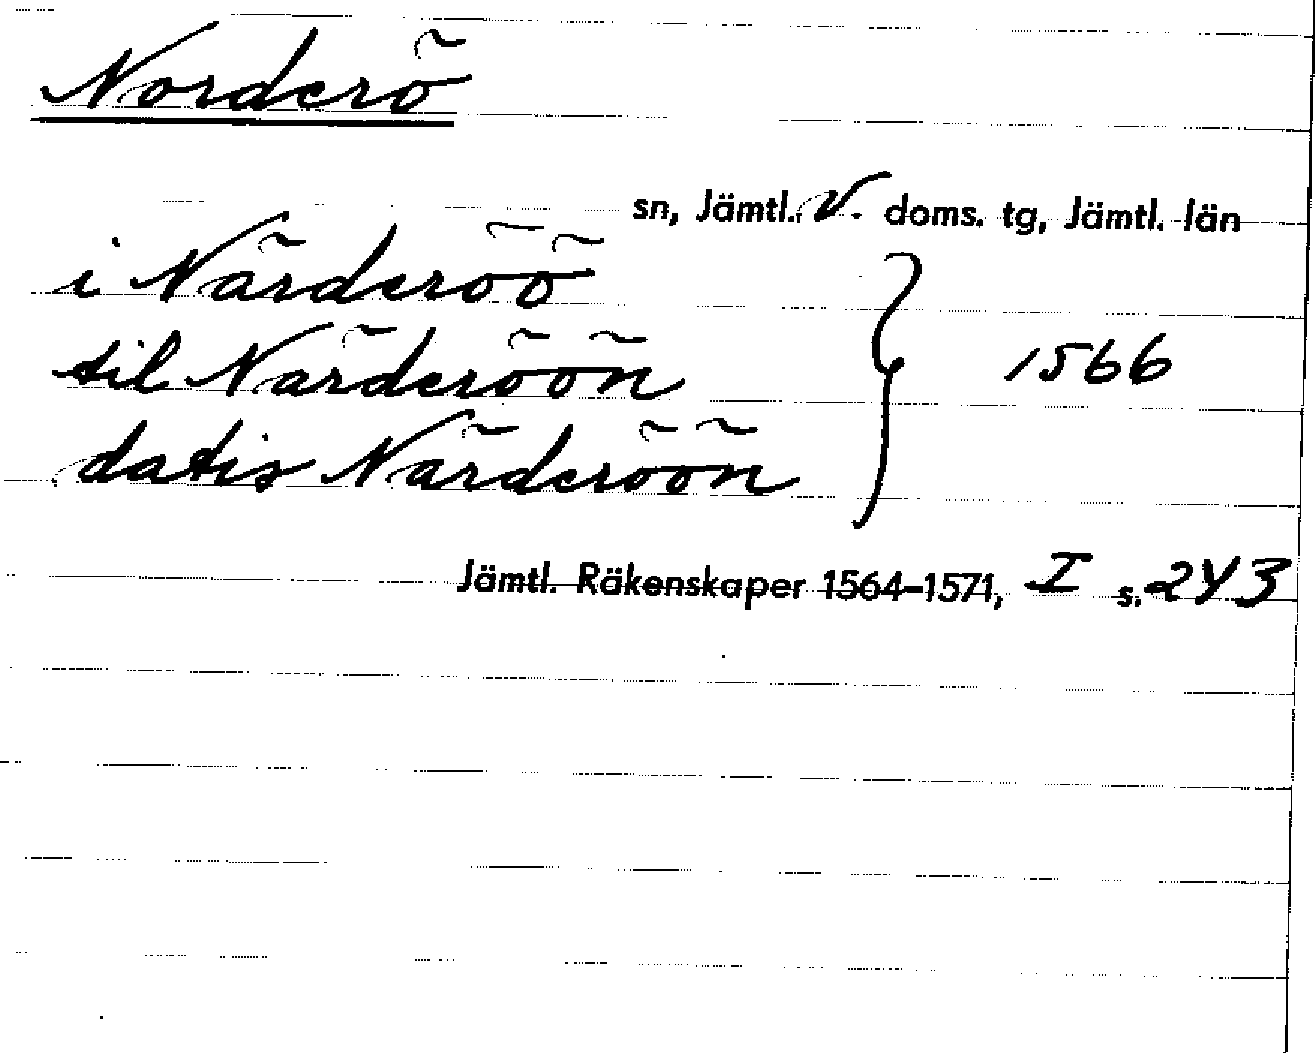 Norderö
sn, Jämtl. V. doms. tg, Jämtl. län
i Närderöö
til Närderöön
datis Närderöön
} 1566
Jämtl. Räkenskaper 1564–1571, I s. 243